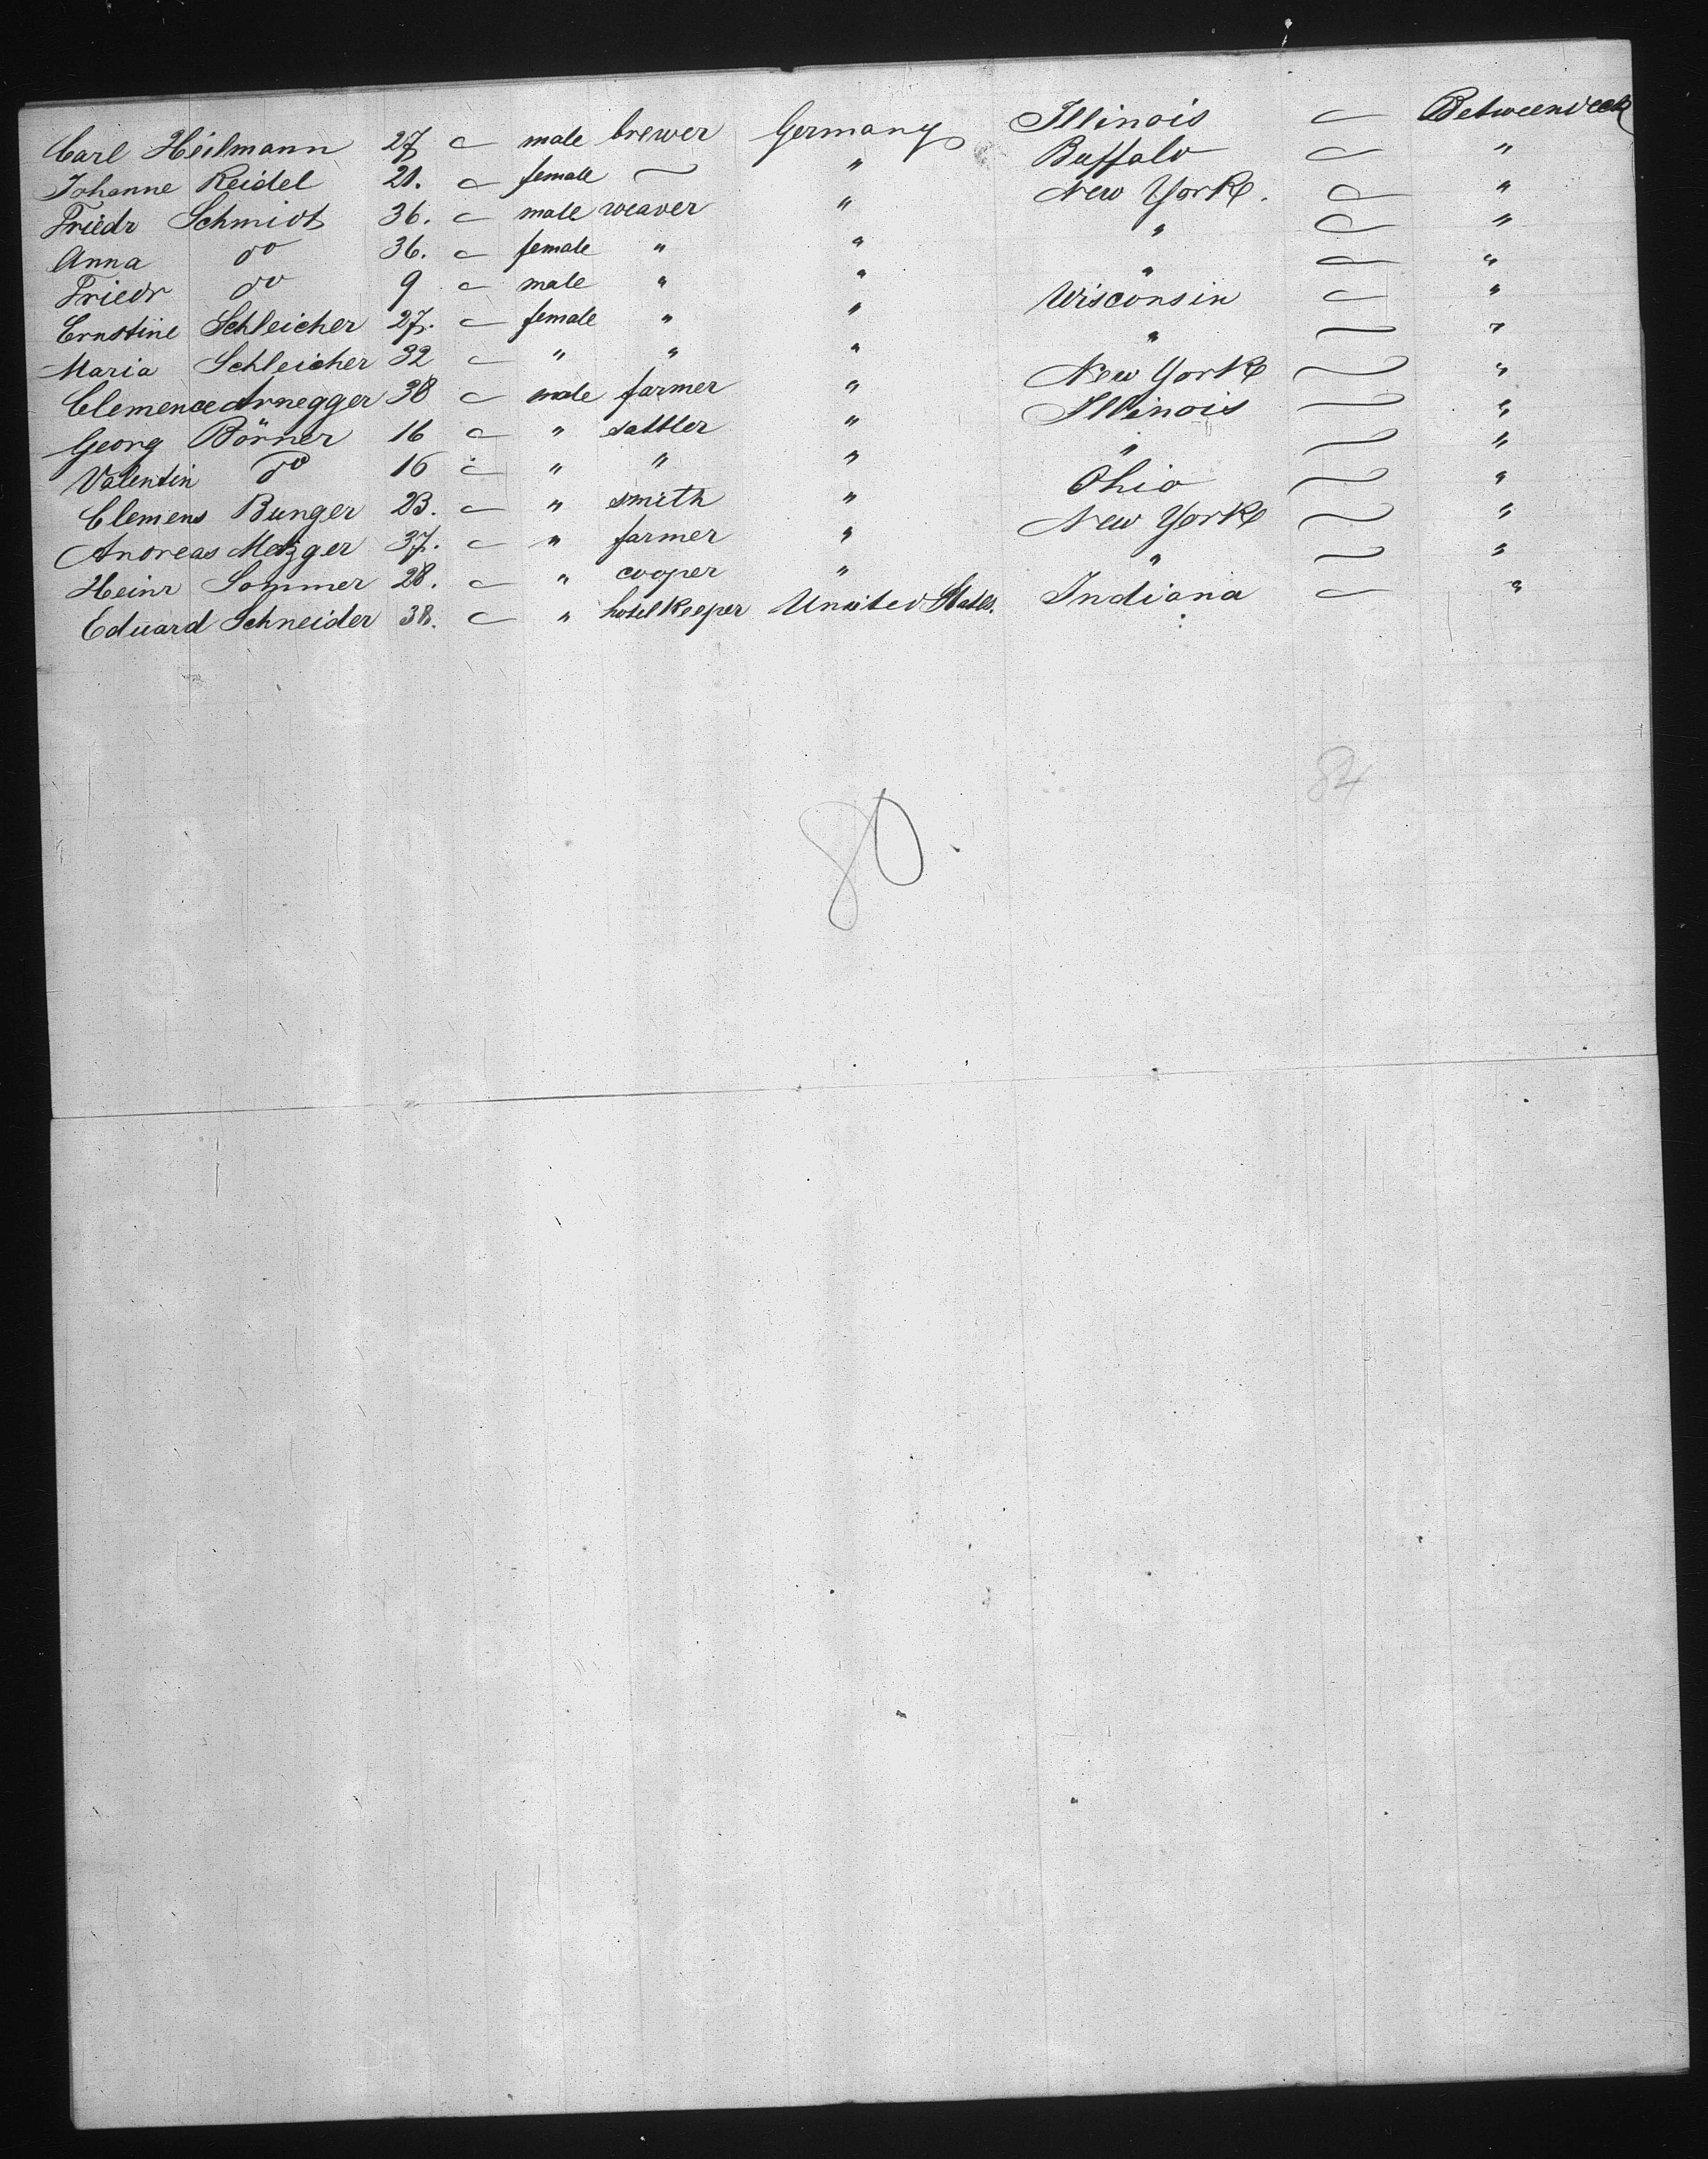 Carl Heilmann 27 male brewer Germany Illinois Betweendeck
Johanne Reidel 21. female — " Buffalo "
Friedr Schmidt 36. male weaver " New York. "
Anna do 36. female " " " "
Friedr do 9 male " " " "
Ernstine Schleicher 27. female " " Wisconsin "
Maria Schleicher 32 " " " " "
Clemence Arnegger 38 male farmer " New York "
Georg Börner 16 " sattler " Illinois "
Valentin do 16 " " " " "
Clemens Bunger 23. " smith " Ohio "
Andreas Metzger 37. " farmer " New York "
Heinr Sommer 28. " cooper " " "
Eduard Schneider 38. " hotelkeeper United States. Indiana "
84
80.